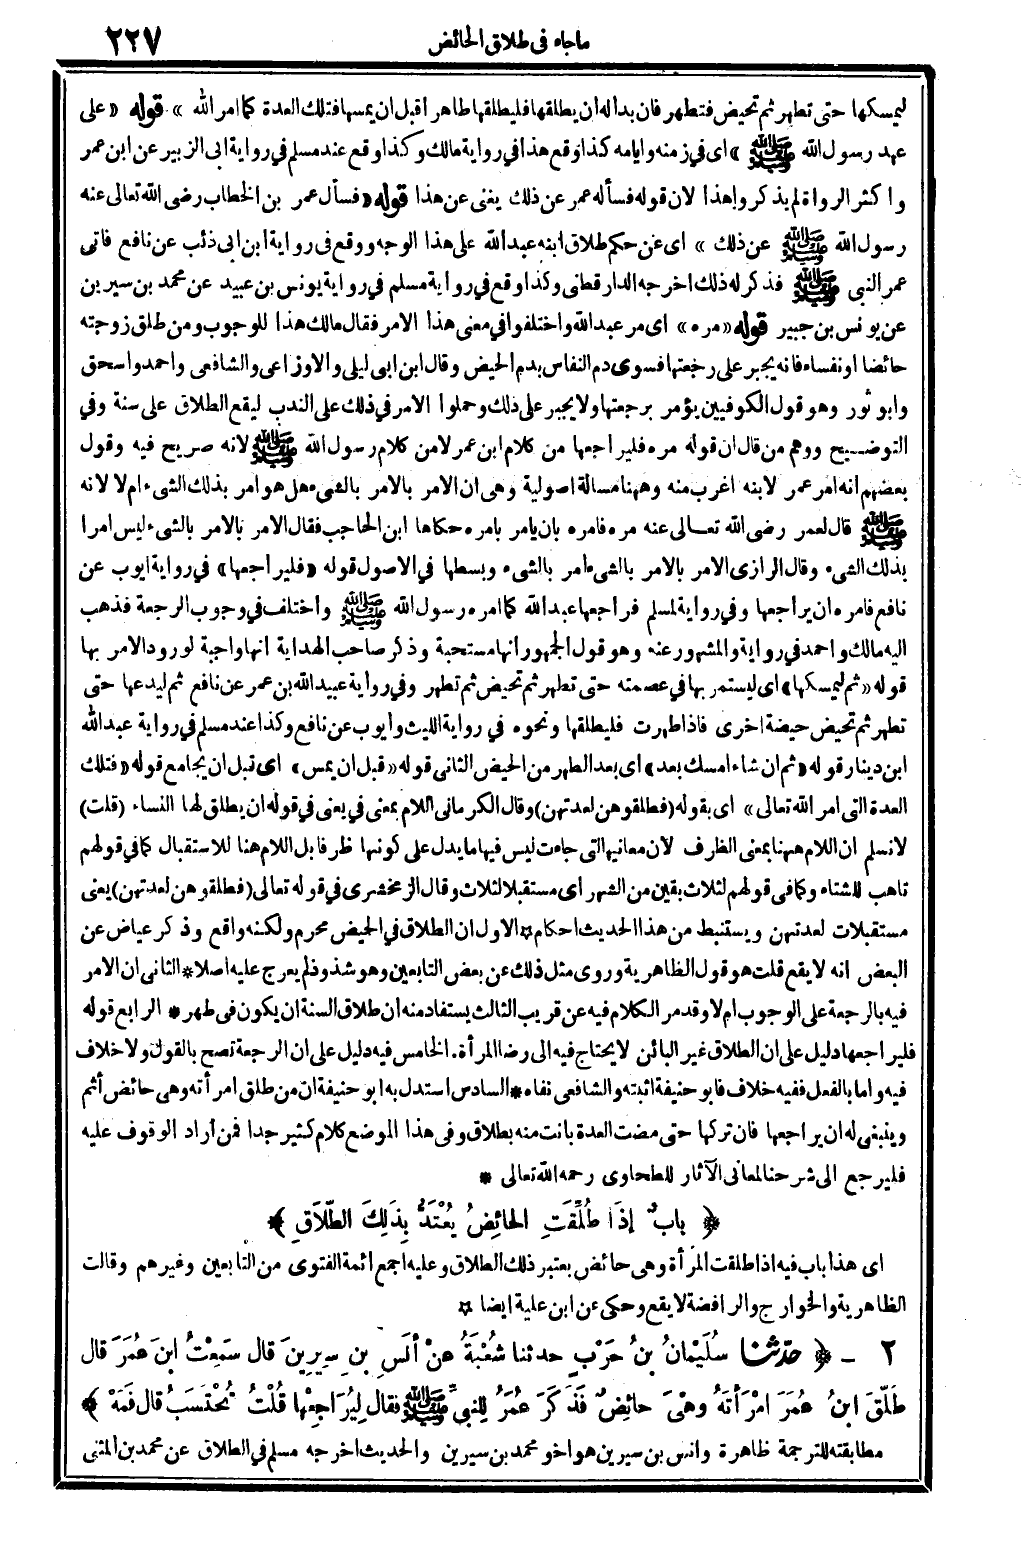 ماجاء فى طلاق الحائض ٢٢٧
ليمسكها حتى تطهر ثم تحيض فتطهر فان بداله ان يطلقها فليطلقها طاهرا قبل ان يمسها فتلك العدة كما امر الله » قوله « على
عهد رسول الله ﷺ » اى فى زمنه وايامه كذا وقع هذا فى رواية مالك وكذا وقع عند مسلم فى رواية ابى الزبير عن ابن عمر
واكثر الرواة لم يذكروا هذا لان قوله فسأله عمر عن ذلك يغنى عن هذا قوله « فسأل عمر بن الخطاب رضى الله تعالى عنه
رسول الله ﷺ عن ذلك » اى عن حكم طلاق ابنه عبد الله على هذا الوجه ووقع فى رواية ابن ابى ذئب عن نافع فاتى
عمر النبى ﷺ فذكر له ذلك اخرجه الدارقطنى وكذا وقع فى رواية مسلم فى رواية يونس بن عبيد عن محمد بن سيرين
عن يونس بن جبير قوله « مره » اى مر عبد الله واختلفوا فى معنى هذا الامر فقال مالك هذا للوجوب ومن طلق زوجته
حائضا او نفساء فانه يجبر على رجعتها فسوى دم النفاس بدم الحيض وقال ابن ابى ليلى والاوزاعى والشافعى واحمد واسحق
وابو ثور وهو قول الكوفيين يؤمر برجعتها ولا يجبر على ذلك وحملوا الامر فى ذلك على الندب ليقع الطلاق على سنة وفي
التوضيح ووهم من قال ان قوله مره فليراجعها من كلام ابن عمر لامن كلام رسول الله ﷺ لانه صريح فيه وقول
بعضهم انه امر عمر لابنه اغرب منه وههنا مسألة اصولية وهى ان الامر بالامر بالشىء هل هو امر بذلك الشىء ام لا لانه
ﷺ قال لعمر رضى الله تعالى عنه مره فامره بان يامر بامره حكاها ابن الحاجب فقال الامر بالامر بالشىء ليس امرا
بذلك الشىء وقال الرازى الامر بالامر بالشىء امر بالشىء وبسطها فى الاصول قوله « فليراجعها » فى رواية ايوب عن
نافع فامره ان يراجعها وفى رواية لمسلم فراجعها عبد الله كما امره رسول الله ﷺ واختلف فى وجوب الرجعة فذهب
اليه مالك واحمد فى رواية والمشهور عنه وهو قول الجمهور انها مستحبة وذكر صاحب الهداية انها واجبة لورود الامر بها
قوله « ثم ليمسكها » اى ليستمر بها فى عصمته حتى تطهر ثم تحيض ثم تطهر وفى رواية عبيد الله بن عمر عن نافع ثم ليدعها حتى
تطهر ثم تحيض حيضة اخرى فاذا طهرت فليطلقها ونحوه فى رواية الليث وايوب عن نافع وكذا عند مسلم فى رواية عبد الله
ابن دينار قوله « ثم ان شاء امسك بعد » اى بعد الطهر من الحيض الثانى قوله « قبل ان يمس » اى قبل ان يجامع قوله « فتلك
العدة التى امر الله تعالى » اى بقوله ( فطلقوهن لعدتهن ) وقال الكرمانى اللام بمعنى فى يعنى فى قوله ان يطلق لها النساء ( قلت )
لا نسلم ان اللام ههنا بمعنى الظرف لان معانيها التى جاءت ليس فيها ما يدل على كونها ظرفا بل اللام هنا للاستقبال كما فى قولهم
تاهب للشتاء وكما فى قولهم لثلاث بقين من الشهر اى مستقبلا لثلاث وقال الزمخشرى فى قوله تعالى ( فطلقوهن لعدتهن ) يعنى
مستقبلات لعدتهن ويستنبط من هذا الحديث احكام * الاول ان الطلاق فى الحيض محرم ولكنه واقع وذكر عياض عن
البعض انه لا يقع قلت هو قول الظاهرية وروى مثل ذلك عن بعض التابعين وهو شذوذ لم يعرج عليه اصلا * الثانى ان الامر
فيه بالرجعة على الوجوب ام لا وقد مر الكلام فيه عن قريب الثالث يستفاد منه ان طلاق السنة ان يكون فى طهر * الرابع قوله
فليراجعها دليل على ان الطلاق غير البائن لا يحتاج فيه الى رضا المرأة. الخامس فيه دليل على ان الرجعة تصح بالقول ولا خلاف
فيه واما بالفعل ففيه خلاف فابو حنيفة اثبته والشافعى نفاه * السادس استدل به ابو حنيفة ان من طلق امرأته وهى حائض أثم
وينبغى له ان يراجعها فان تركها حتى مضت العدة بانت منه بطلاق وفى هذا الموضع كلام كثير جدا فمن أراد الوقوف عليه
فليرجع الى شرحنا لمعانى الآثار للطحاوى رحمه الله تعالى *
﴿ بابٌ إذَا طُلِّقَتِ الحائِضُ يُعْتَدُّ بِذَلِكَ الطَّلَاقِ ﴾
اى هذا باب فيه اذا طلقت المرأة وهى حائض يعتبر ذلك الطلاق وعليه اجمع ائمة الفتوى من التابعين وغيرهم وقالت
الظاهرية والخوارج والرافضة لا يقع وحكى عن ابن علية ايضا *
٢ - ﴿ حدّثنا سُلَيْمَانُ بنُ حَرْبٍ حدثنا شُعْبَةُ عنْ أَنَسِ بنِ سِيرِينَ قال سَمِعْتُ ابنَ عُمَرَ قال
طَلَّقَ ابنُ عُمَرَ امْرَأَتَهُ وهْىَ حائِضٌ فَذَكَرَ عُمَرُ لِلنبيِّ ﷺ فقال لِيُرَاجِعْها قُلْتُ تُحْتَسَبُ قال فَمَهْ ﴾
مطابقته للترجمة ظاهرة وانس بن سيرين هو اخو محمد بن سيرين والحديث اخرجه مسلم فى الطلاق عن محمد بن المثنى